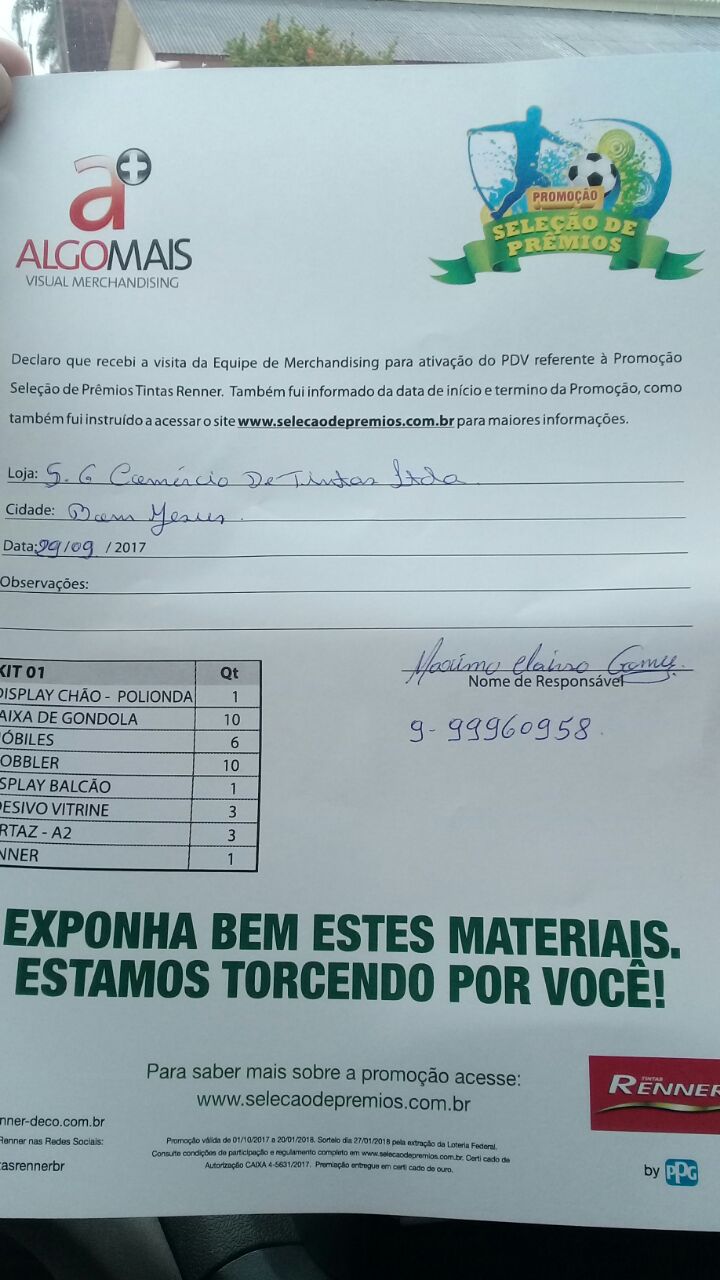 a+
ALGOMAIS
VISUAL MERCHANDISING
PROMOÇÃO
SELEÇÃO DE
PRÊMIOS
Declaro que recebi a visita da Equipe de Merchandising para ativação do PDV referente à Promoção
Seleção de Prêmios Tintas Renner. Também fui informado da data de início e termino da Promoção, como
também fui instruído a acessar o site www.selecaodepremios.com.br para maiores informações.
Loja: S.G Comércio De Tintas Ltda
Cidade: Bom Jesus
Data: 29/09 / 2017
Observações:
KIT 01 Qt
DISPLAY CHÃO - POLIONDA 1
AIXA DE GONDOLA 10
ÓBILES 6
OBBLER 10
SPLAY BALCÃO 1
DESIVO VITRINE 3
RTAZ - A2 3
NNER 1
Nome de Responsável
9-99960958
EXPONHA BEM ESTES MATERIAIS.
ESTAMOS TORCENDO POR VOCÊ!
Para saber mais sobre a promoção acesse:
www.selecaodepremios.com.br
nner-deco.com.br
Renner nas Redes Sociais:
tasrennerbr
Promoção válida de 01/10/2017 a 20/01/2018. Sorteio dia 27/01/2018 pela extração da Loteria Federal.
Consulte condições de participação e regulamento completo em www.selecaodepremios.com.br. Certi cado de
Autorização CAIXA 4-5631/2017. Premiação entregue em certi cado de ouro.
TINTAS
RENNER
by PPG